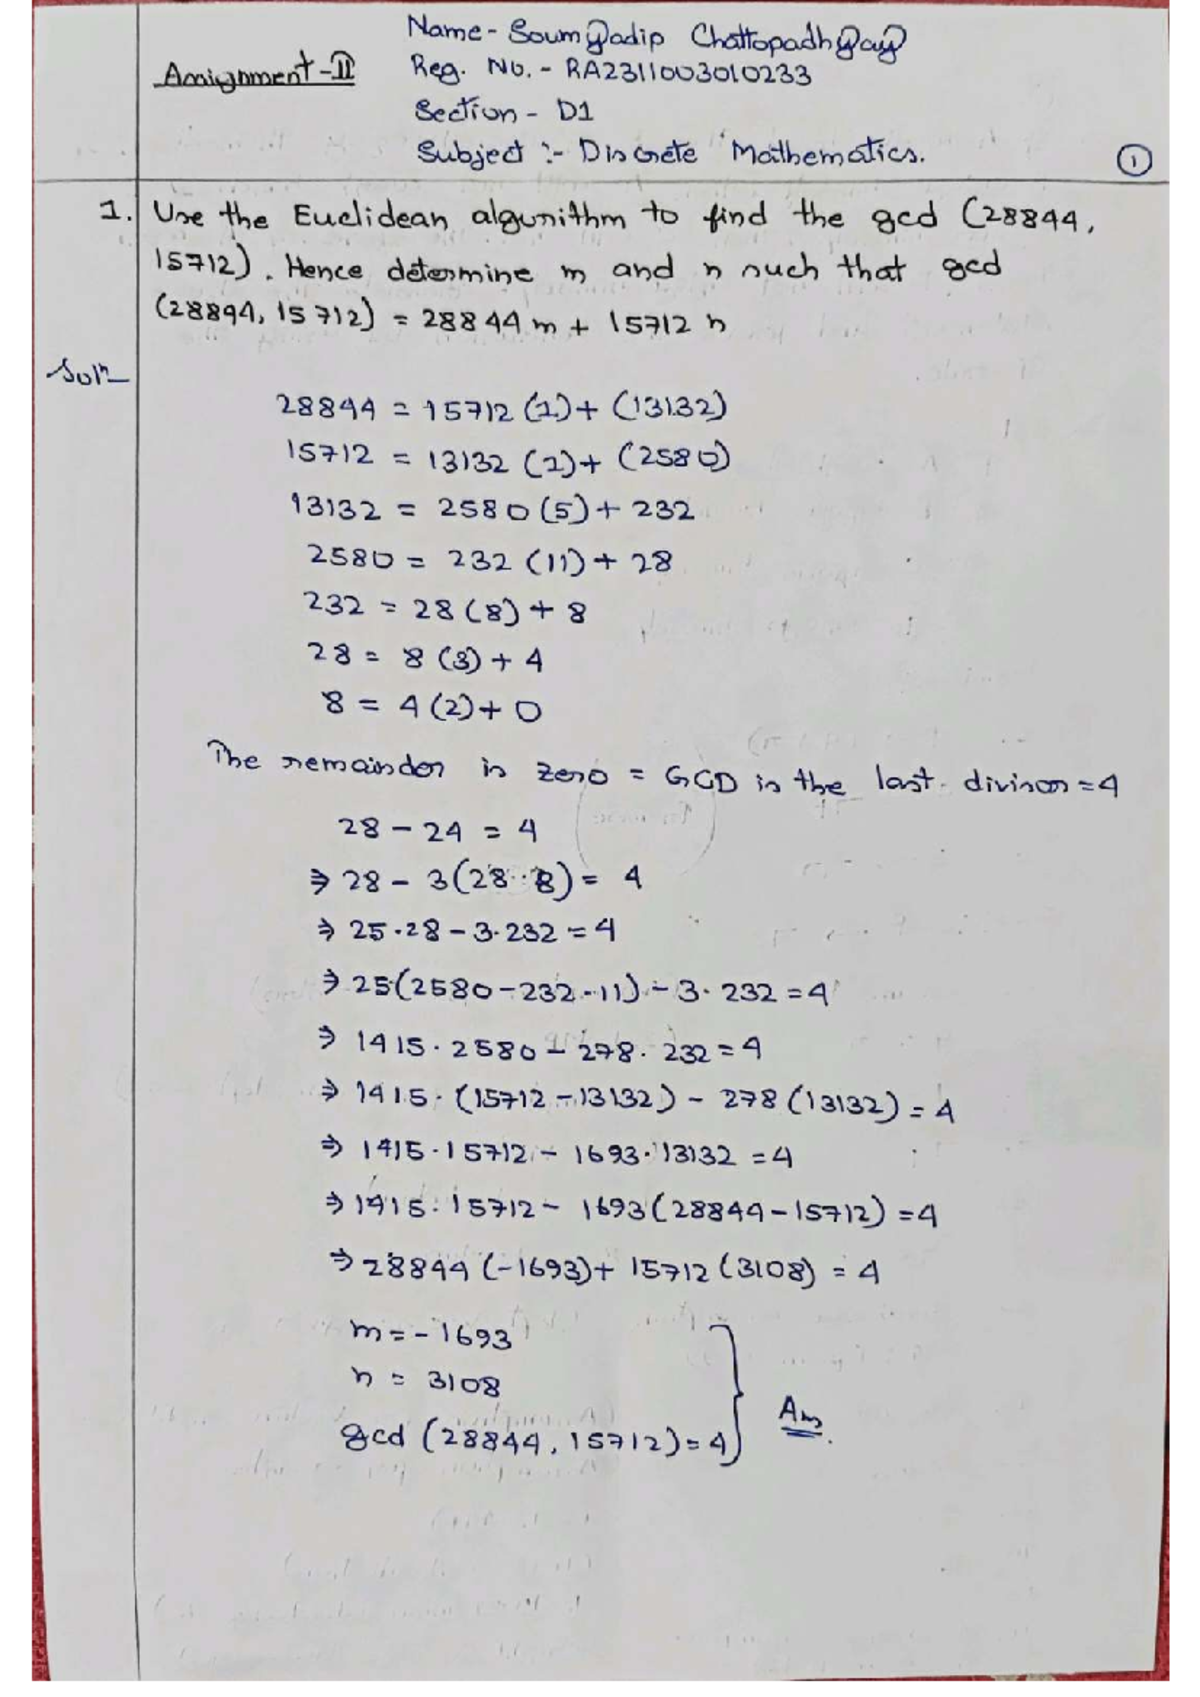 Name- Soumyadip Chattopadhyay
Assignment-II
Reg. No. - RA2311003010233
Section - D1
Subject :- Discrete Mathematics.
1
1. Use the Euclidean algorithm to find the gcd (28844,
15712). Hence determine m and n such that gcd
(28844, 15712) = 28844 m + 15712 n
Soln
28844 = 15712 (1) + (13132)
15712 = 13132 (1) + (2580)
13132 = 2580 (5) + 232
2580 = 232 (11) + 28
232 = 28 (8) + 8
28 = 8 (3) + 4
8 = 4 (2) + 0
The remainder is zero = GCD is the last divisor = 4
28 - 24 = 4
⇒ 28 - 3(28·8) = 4
⇒ 25·28 - 3·232 = 4
⇒ 25(2580 - 232·11) - 3·232 = 4
⇒ 1415·2580 - 278·232 = 4
⇒ 1415·(15712 - 13132) - 278(13132) = 4
⇒ 1415·15712 - 1693·13132 = 4
⇒ 1415·15712 - 1693(28844 - 15712) = 4
⇒ 28844 (-1693) + 15712 (3108) = 4
m = - 1693
n = 3108
gcd (28844, 15712) = 4
Ans.